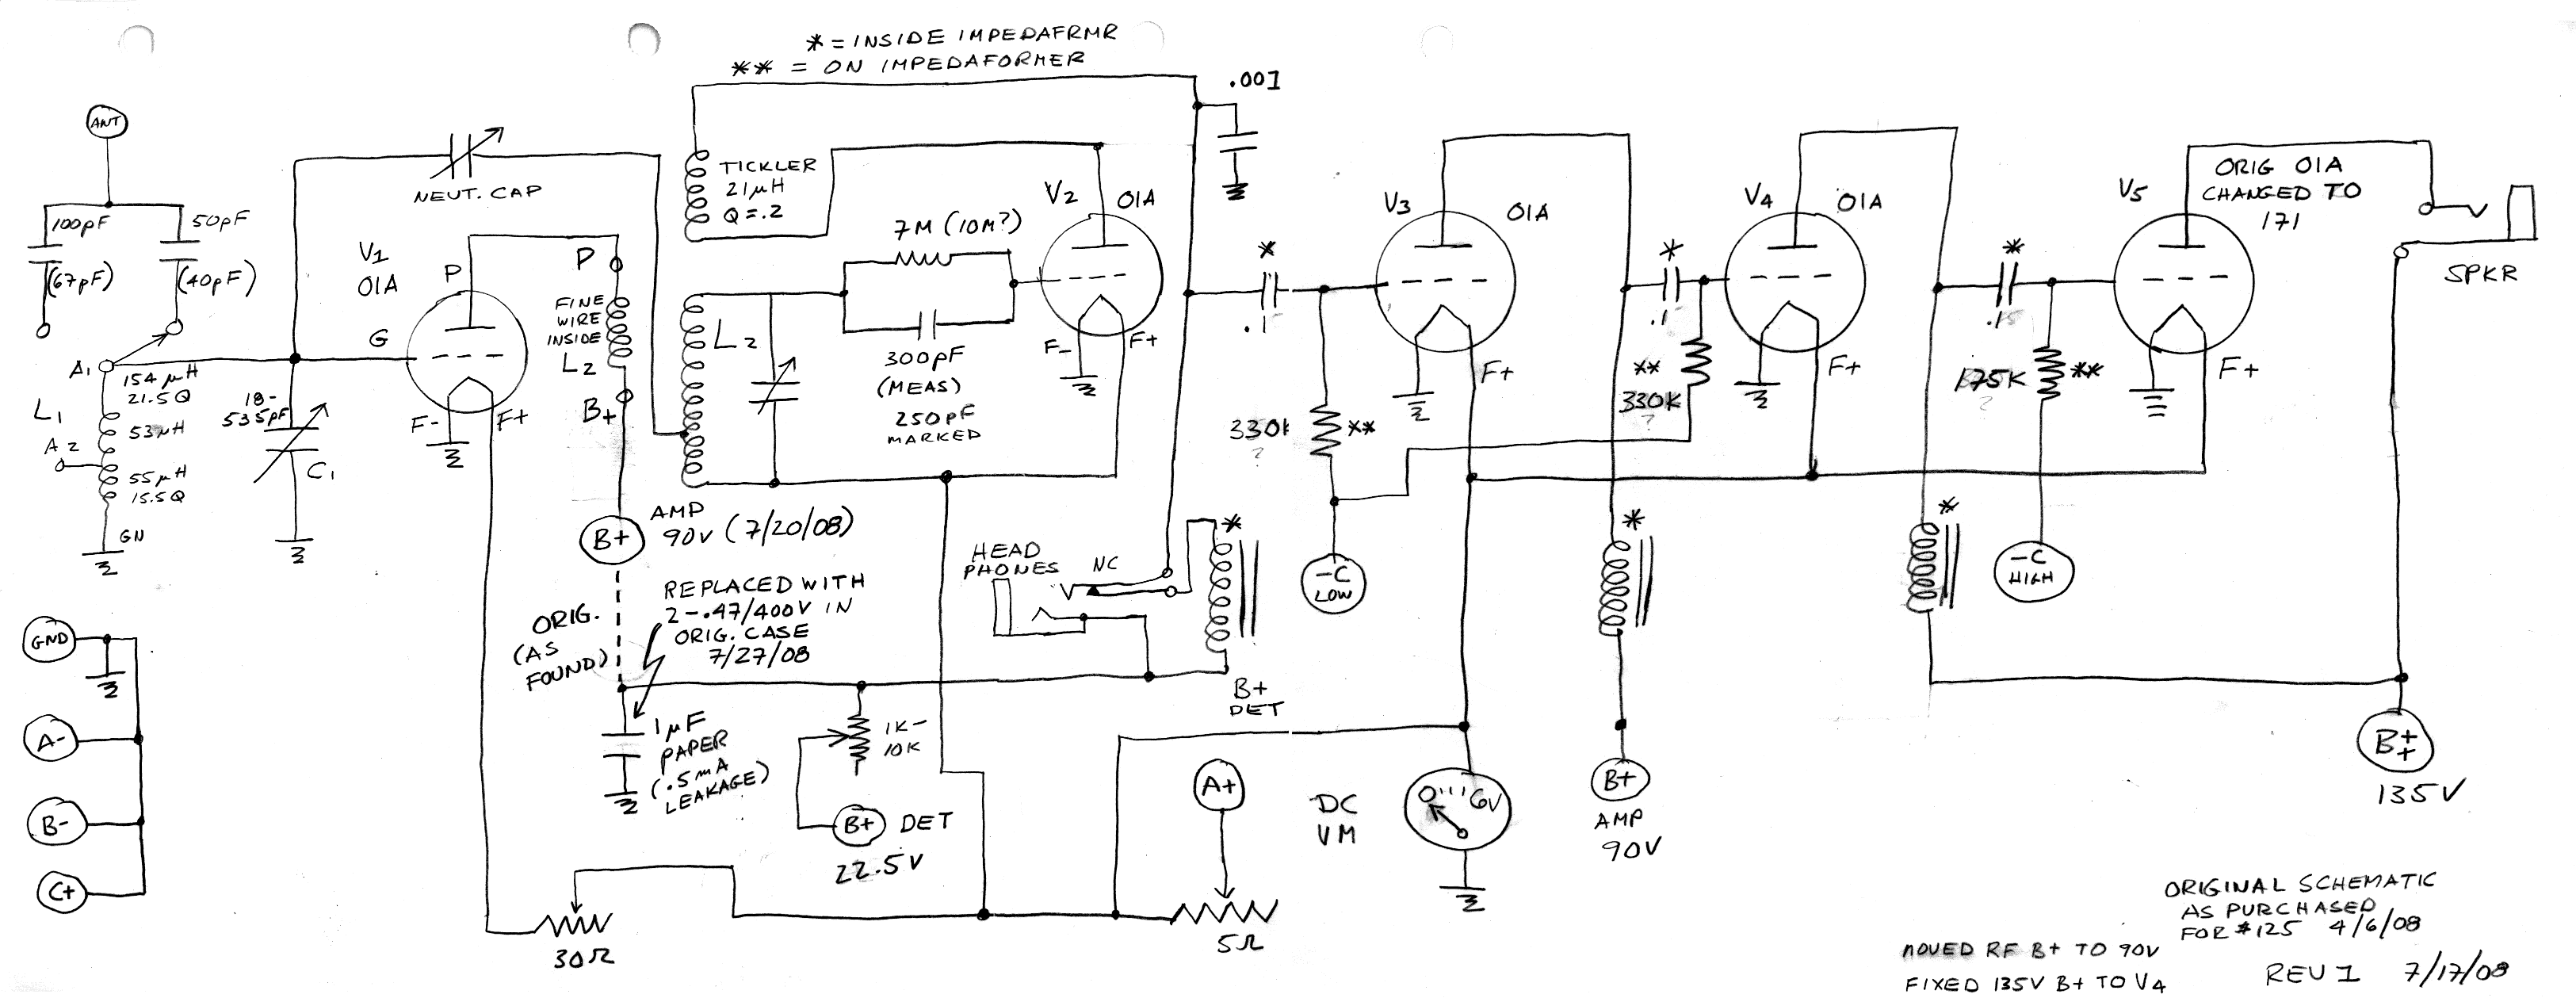 * = INSIDE IMPEDAFRMR
** = ON IMPEDAFORMER
ANT
100pF
(67pF)
50pF
(40pF)
A1
154 µH
21.5Q
L1
53µH
A2
55µH
15.5Q
GN
18-
535pF
C1
NEUT. CAP
V1
01A
P
G
F-
F+
P
FINE
WIRE
INSIDE
L2
B+
B+
AMP
90V (7/20/08)
ORIG.
(AS
FOUND)
REPLACED WITH
2-.47/400V IN
ORIG. CASE
7/27/08
1µF
PAPER
(.5mA
LEAKAGE)
TICKLER
21µH
Q=.2
L2
7M (10M?)
300pF
(MEAS)
250pF
MARKED
V2
01A
F-
F+
.001
HEAD
PHONES
NC
*
B+
DET
1K-
10K
B+ DET
22.5V
30Ω
A+
5Ω
*
.1
330k
?
**
-C
LOW
V3
01A
F+
DC
VM
0 6V
*
.1
**
330K
?
*
B+
AMP
90V
V4
01A
F+
*
.15
175K
?
**
*
-C
HIGH
V5
ORIG 01A
CHANGED TO
171
F+
SPKR
B+
+
135V
GND
A-
B-
C+
ORIGINAL SCHEMATIC
AS PURCHASED
FOR $125 4/6/08
MOVED RF B+ TO 90V
FIXED 135V B+ TO V4
REV 1 7/17/08